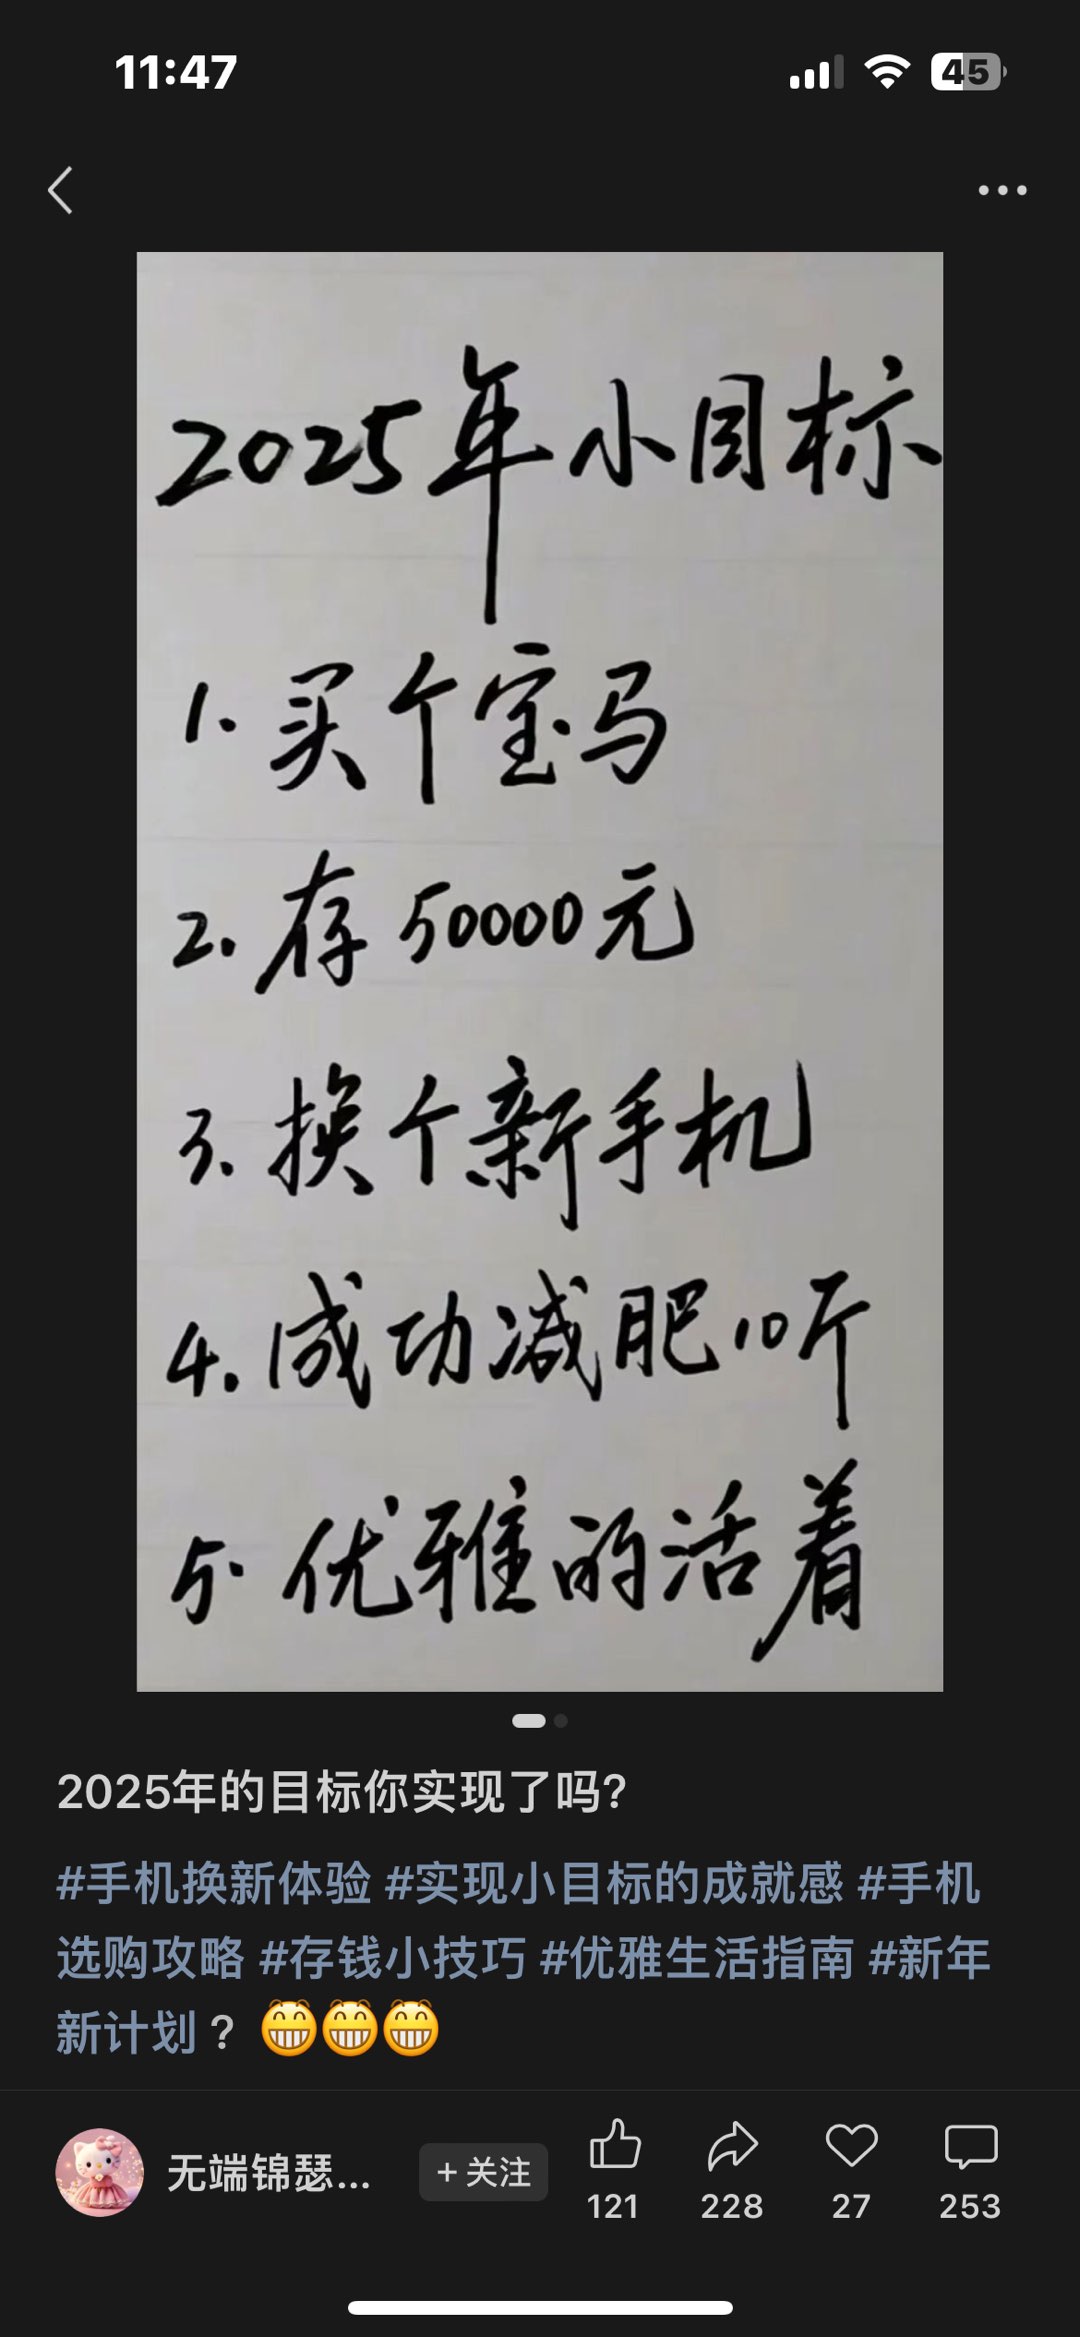 11:47
45
2025年小目标
1. 买个宝马
2. 存50000元
3. 换个新手机
4. 成功减肥10斤
5. 优雅的活着
2025年的目标你实现了吗?
#手机换新体验 #实现小目标的成就感 #手机
选购攻略 #存钱小技巧 #优雅生活指南 #新年
新计划？ 😁😁😁
无端锦瑟...
+ 关注
121
228
27
253